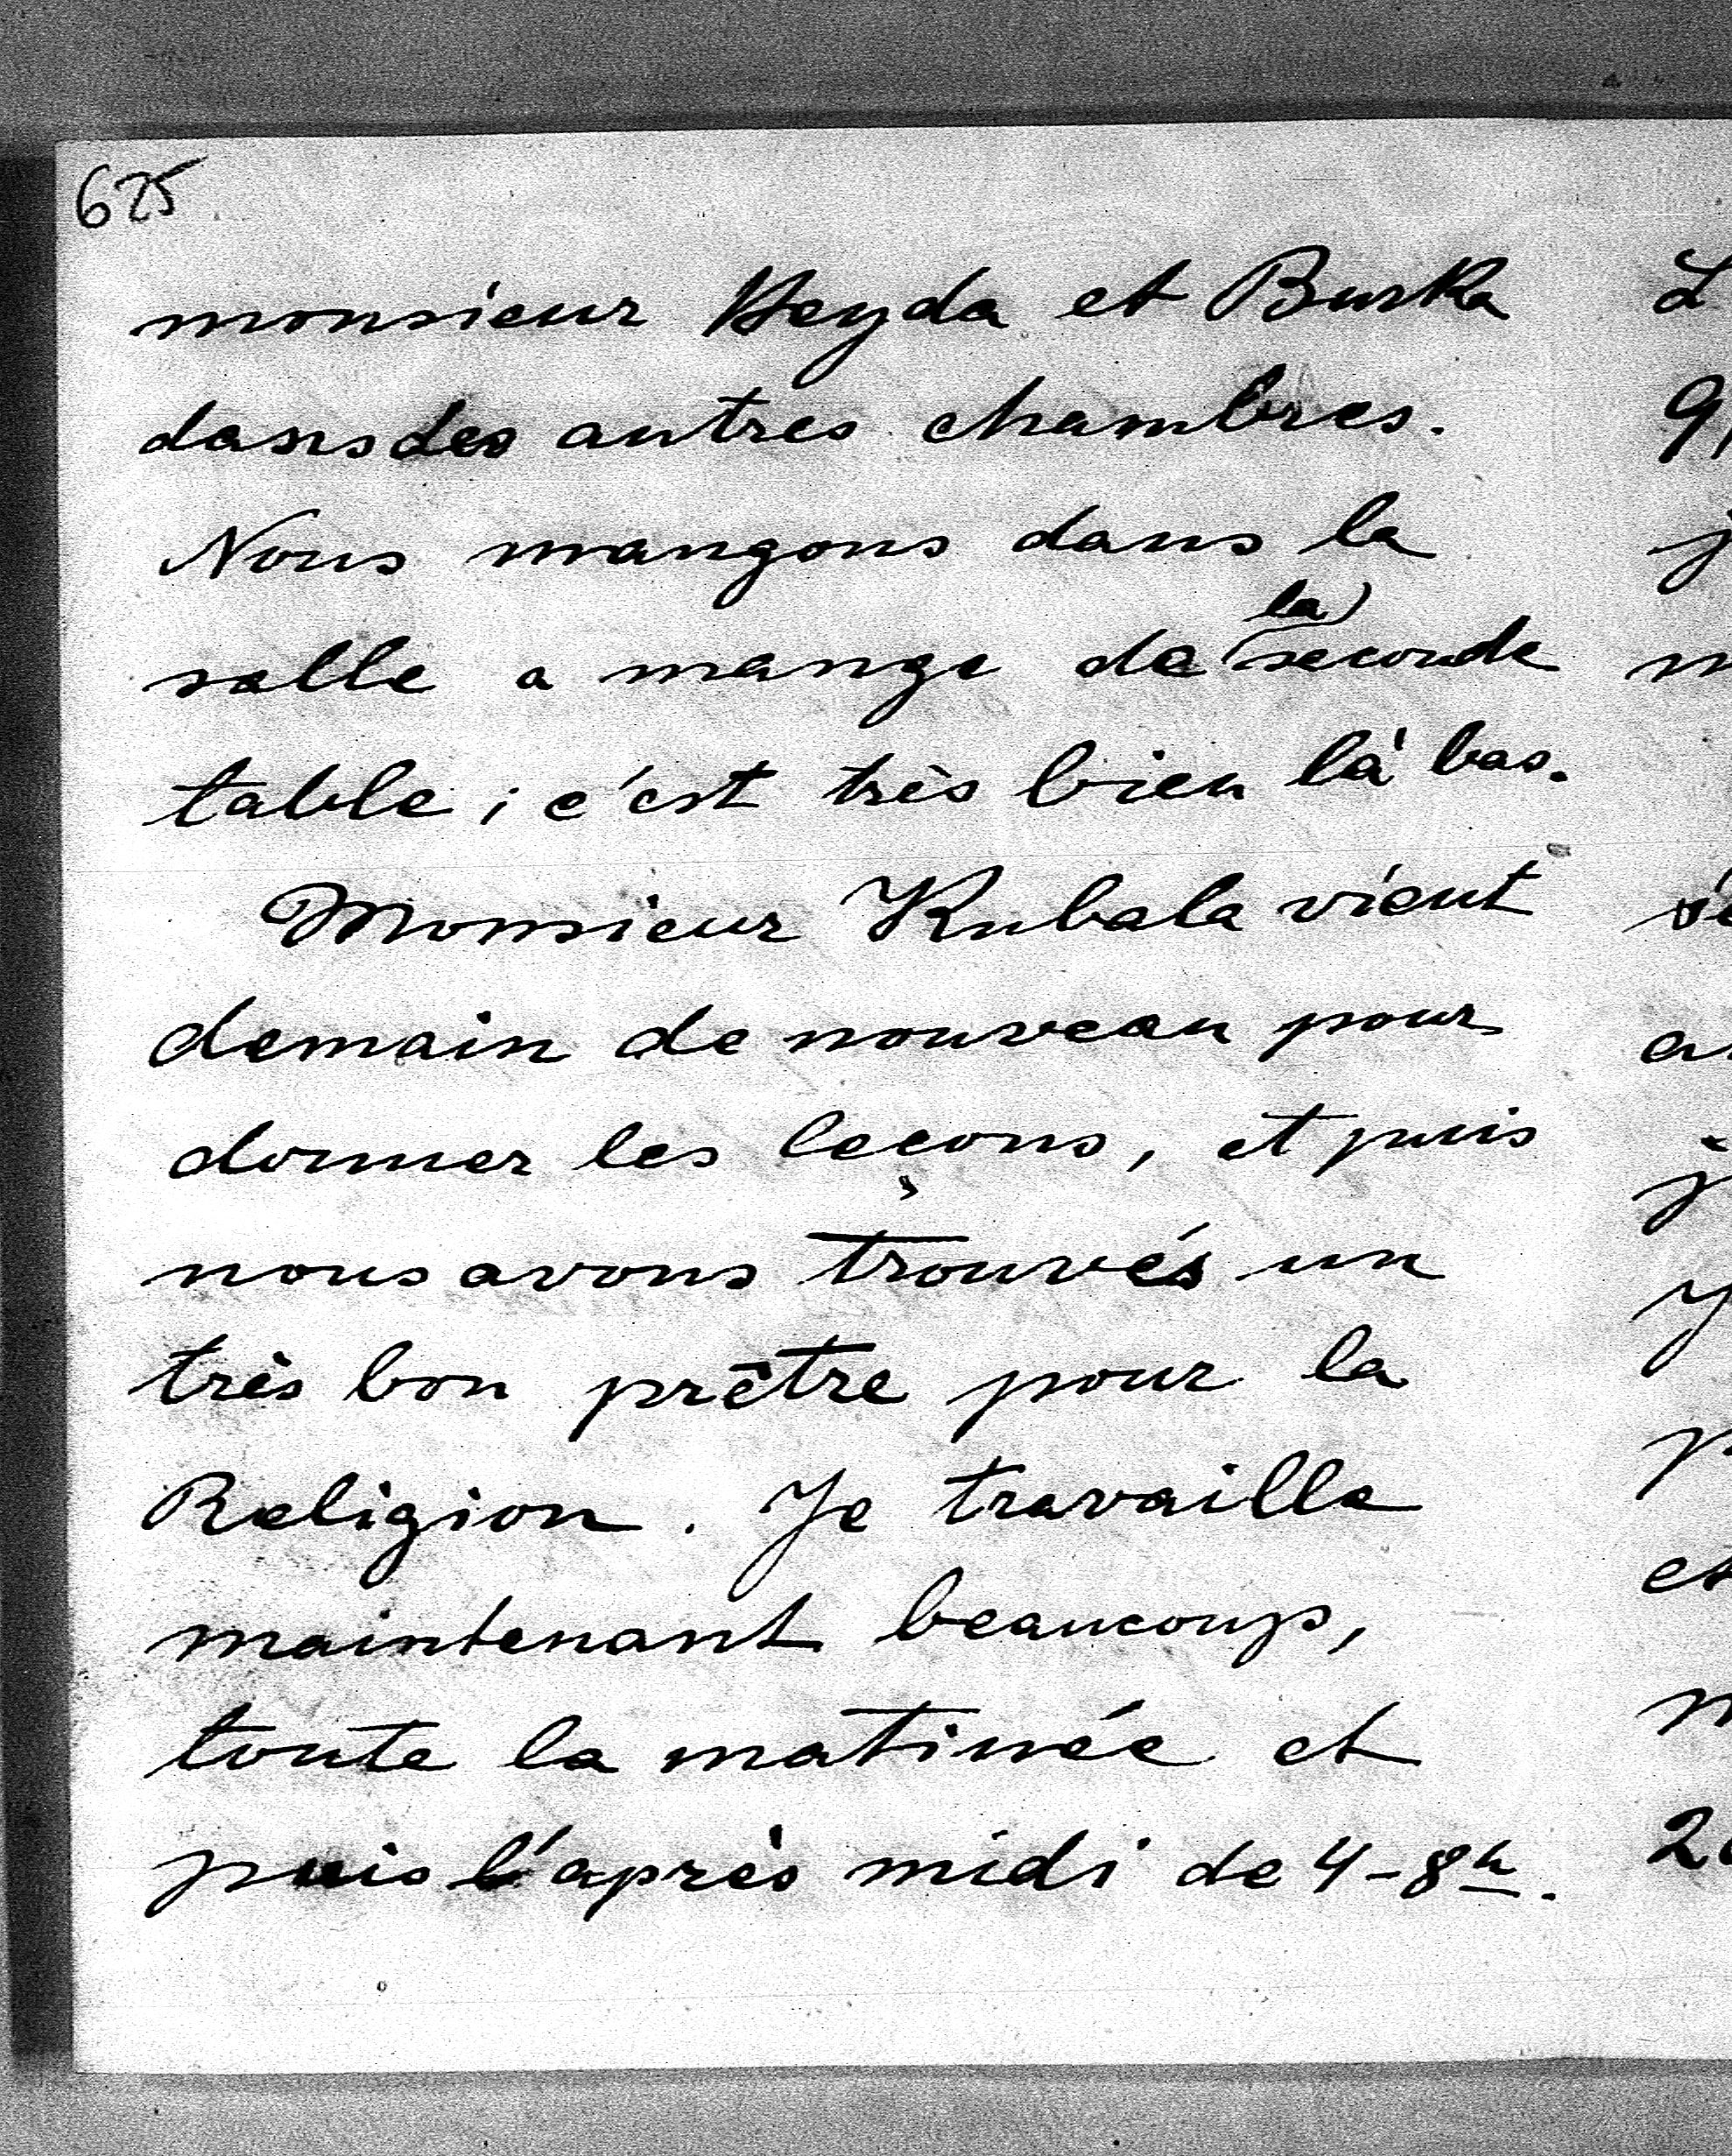 675
monsieur Heyda et Burka
dans des autres chambres.
Nous mangons dans la
salle a mange de (la) seconde
table; c'est très bien là bas.
Monsieur Kubala vient
demain de nouveau pour
donner les leçons, et puis
nous avons trouvés un
très bon prêtre pour la
Religion. Je travaille
maintenant beaucoup,
toute la matinée et
puis l'après midi de 4-8h.